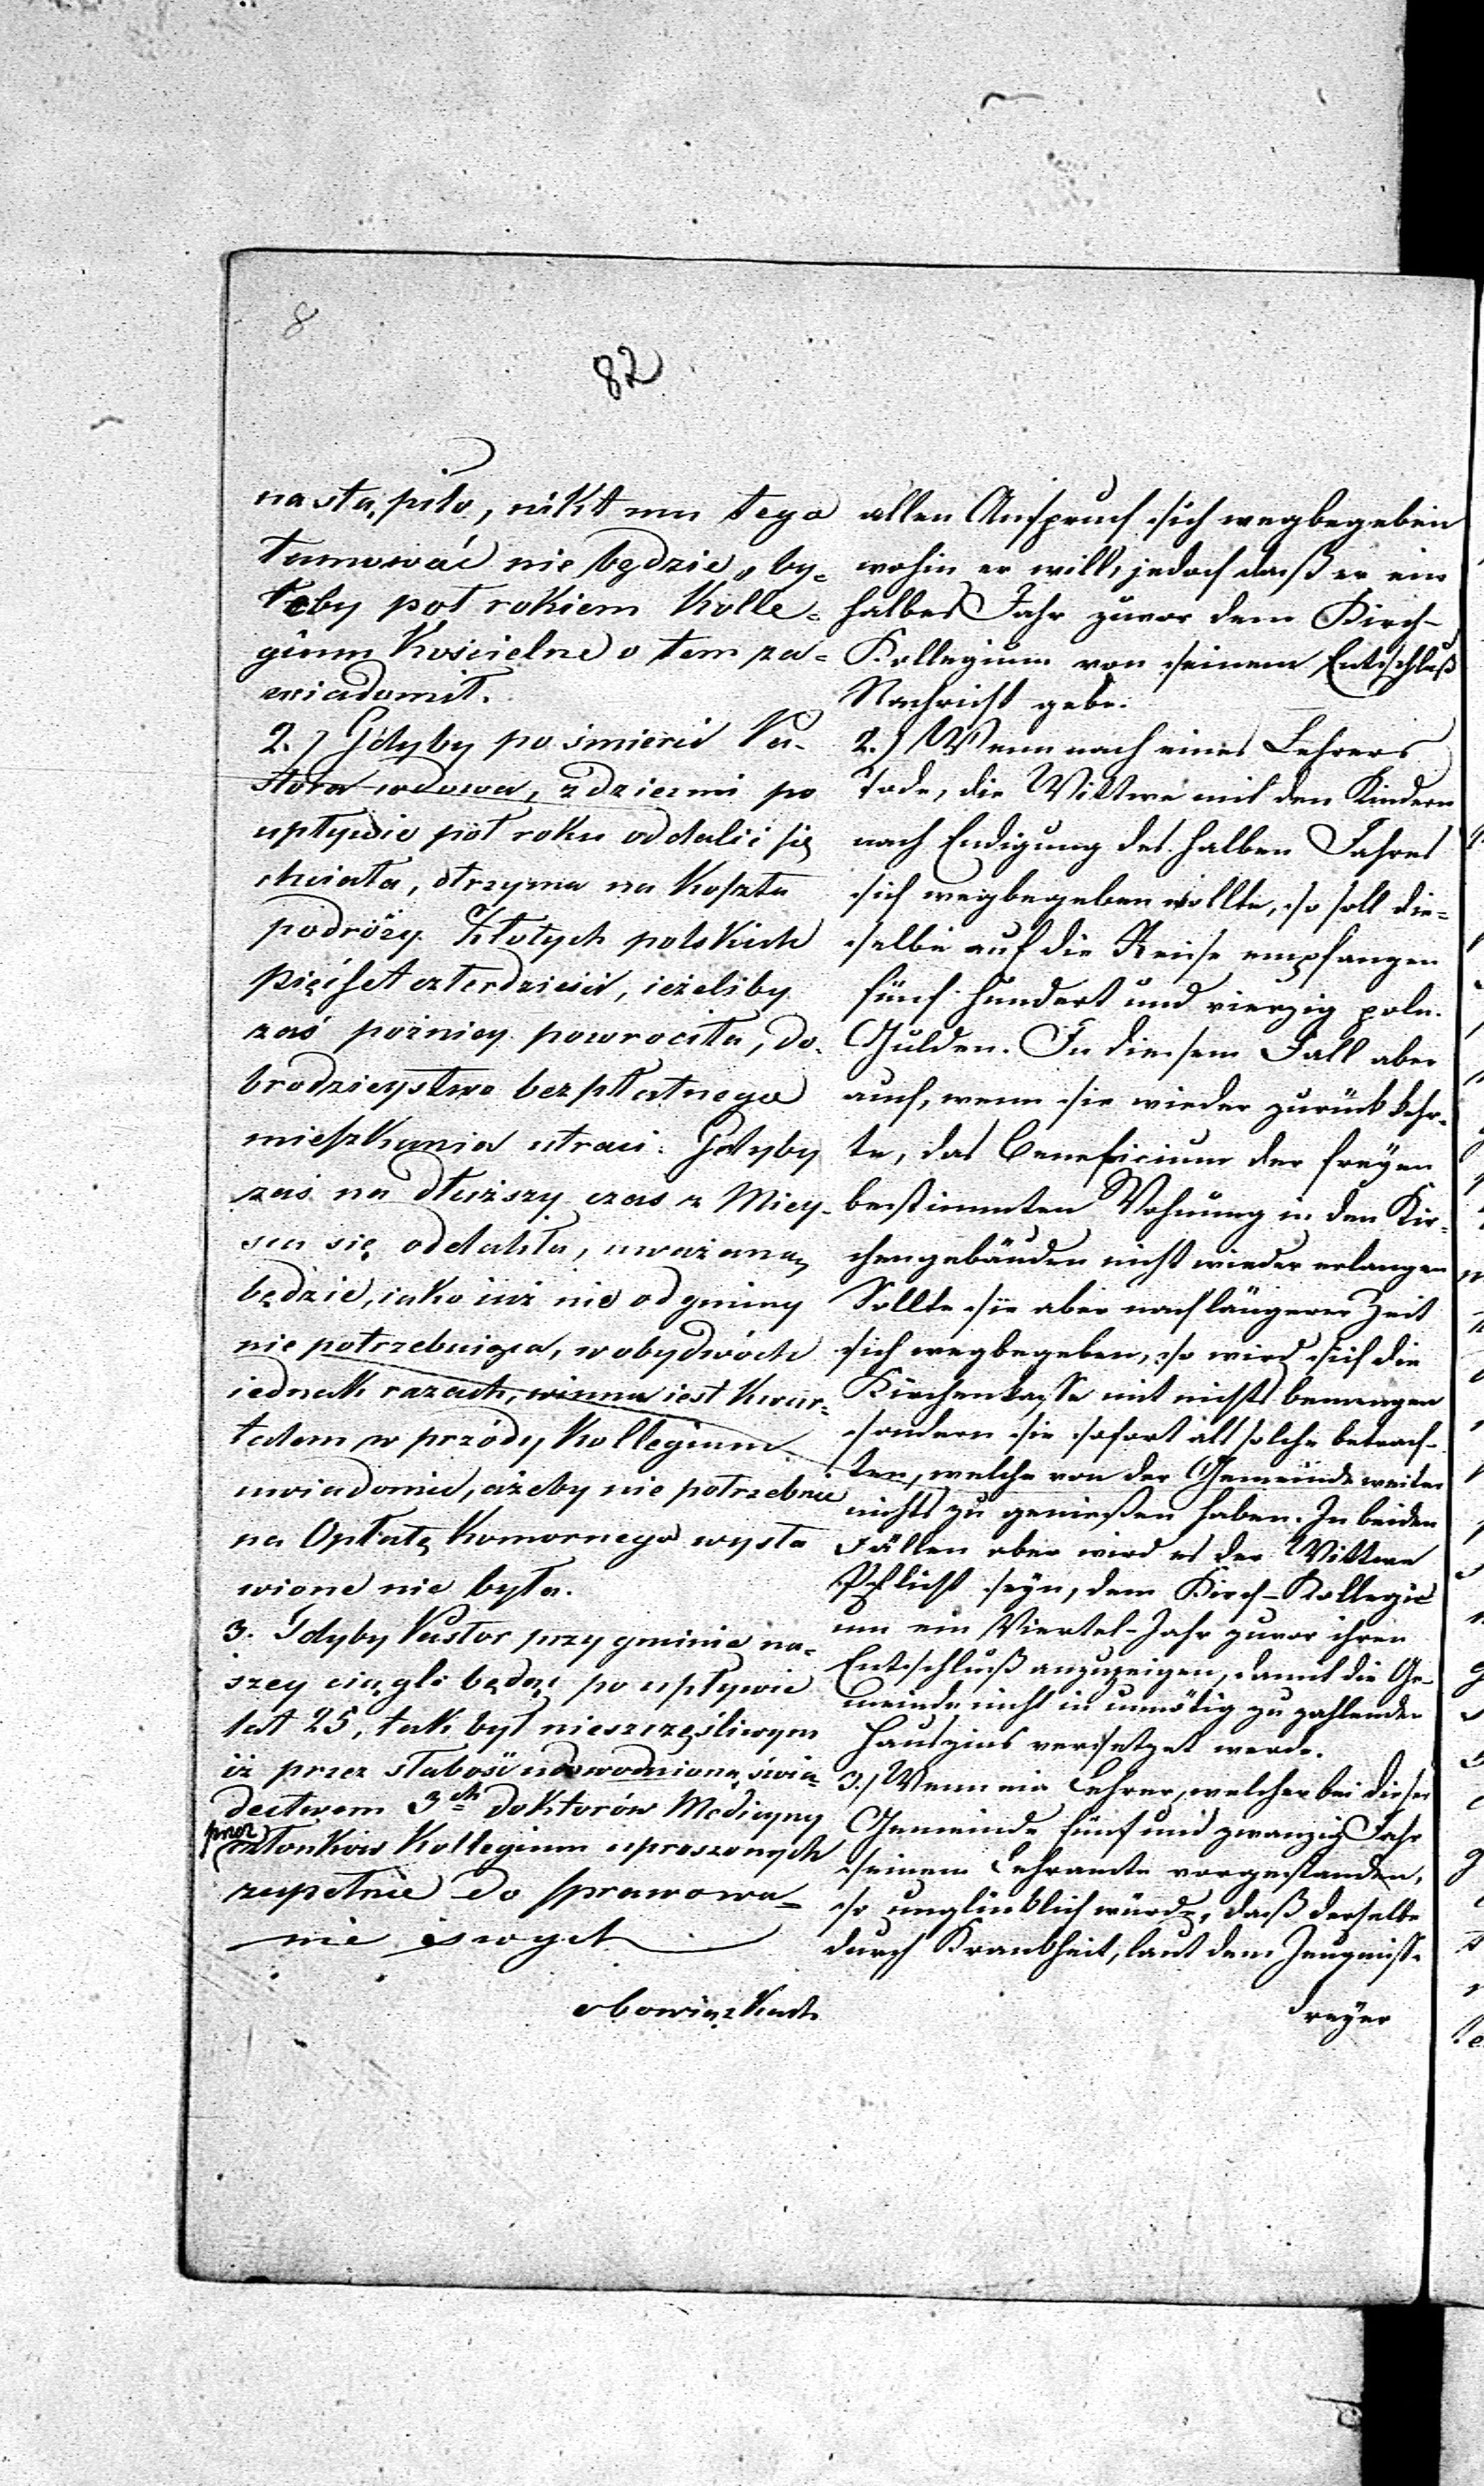 8
82
nastąpiło, nikt mu tego
tamować nie będzie, by=
leby pół rokiem Kolle=
gium Kościelne o tem za=
wiadomił.
2.) Gdyby po śmierci Pa-
stora wdowa, z dziećmi po
upływie pół roku oddalić się
chciała, otrzyma na koszta
podróży Złotych polskich
pięćset czterdzieści, ieżeliby
zaś pożniey powrociła, do-
brodzieystwo bezpłatnego
mieszkania utraci. Gdyby
zaś na dłuższy czas z Miey-
sca się oddaliła, uważaną
będzie, iako iuż nic od gminy
nie potrzebuiąca, w obydwóch
iednak razach, winna iest kwar=
tałem w przódy Kollegium
uwiadomić, ażeby nie potrzebnie
na Opłatę Komornego wysta
wione nie było.
3. Gdyby Pastor przy gminie na=
szey ciągle będąc po upływie
lat 25, tak był nieszczęśliwym
iż przez słabość udowodnioną, świa=
dectwem 3ch Doktorów Medicyny
przez
członków Kollegium uproszonych
zupełnie do sprawowa=
nia swych
obowiązkach
allen Anspruch sich wegbegeben
wohin er will, jedoch daß er ein
halbes Jahr zuvor dem Kirch-
Kollegium von seinem Entschluß
Nachricht gebe.
2.) Wenn nach eines Lehrers
Tode, die Wittwe mit den Kindern
nach Endigung des halben Jahres
sich wegbegeben wollte, so soll die=
selbe auf die Reise empfangen
fünf hundert und vierzig poln.
Gulden. In diesem Fall aber
auch, wenn sie wieder zurück kehr-
te, das Beneficium der freyen
bestimmten Wohnung in den Kir-
chengebäuden nicht wieder erlangen
Sollte sie aber nach längerer Zeit
sich wegbegeben, so wird sich die
Kirchenkasse mit nichts bemengen
sondern sie sofort als solche betrach-
ten, welche von der Gemeinde weiter
nichts zu genießen haben. In beiden
Fällen aber wird es der Wittwe
Pflicht seyn, dem Kirch-Kollegi=
um ein Viertel-Jahr zuvor ihren
Entschluß anzuzeigen, damit die Ge-
meinde nicht in unnötig zu zahlenden
Hauszins versetzet werde.
3.) Wenn ein Lehrer, welcher bei dieser
Gemeinde fünf und zwanzig Jahr
seinem Lehramte vorgestanden,
so unglücklich würde, daß derselbe
durch Krankheit, laut dem Zeugnisse
dreyer